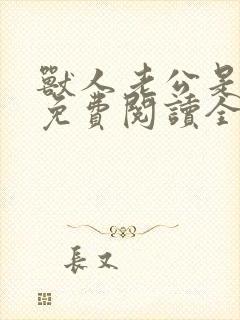 獸人老公是
免費閱讀全
長又